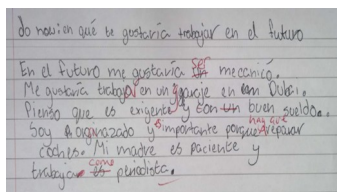 do now: en qué te gustaría trabajar en el futuro
En el futuro me gustaría ser meccanico.
Me gustaría trabajar en un garaje en Dubai.
Pienso que es exigente y con un buen sueldo.
hay que
Soy organazado y es importante porque reparar
coches. Mi madre es paciente y
como
trabaja es periodista.